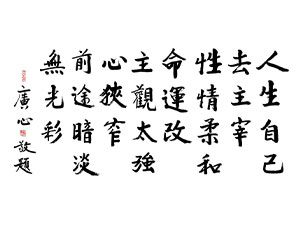 人生自己
去主宰
性情柔和
命運改
主觀太強
心狹窄
前途暗淡
無光彩
廣心敬題